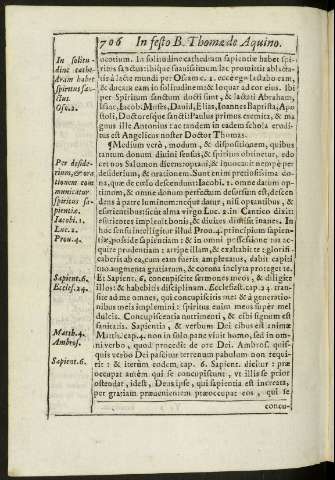 706 In festo B. Thomæ de Aquino.
In solitu-
dine cathe-
dram habet
spiritus sãc-
ctus.
Ose. 2.
Per deside-
rium, & ora
tionem com
municatur
spiritus sa-
pientiæ.
Jacobi. 1.
Luc. 2.
Prou. 4.
Sapient. 6.
Eccles. 24.
Matth. 4.
Ambros.
Sapient. 6.
ocotium. In solitudine cathedram sapientiæ habet spi-
ritus sanctus: ibique suauissimum lac prouintis ablacta-
tis à lacte mundi per Oseam c. 2. ecce ego lactabo eam,
& ducam eam in solitudinem & loquar ad cor eius. Ibi
per Spiritum sanctum docti sunt, & lactati Abraham,
Isaac, Iacob: Moses, Dauid, Elias, Ioannes Baptista, Apo
stoli, Doctoresque sancti: Paulus primus eremita, & ma
gnus ille Antonius: ac tandem in eadem schola erudi-
tus est Angelicus noster Doctor Thomas.
¶ Medium verò, modum, & dispositionem, quibus
tantum donum diuini sensus, & spiritus obtinetur, edo
cet nos Salomon dicens: optaui, & inuocaui: nempè per
desiderium, & orationem. Sunt enim pretiosissima do-
na, quæ de cœlo descendunt: Iacobi. 1. omne datum op-
timum, & omne donum perfectum desursum est, descen
dens à patre luminum: necque datur, nisi optantibus, &
esurientibus: sicut alma virgo Luc. 2. in Cantico dixit:
esurientes impleuit bonis, & diuites dimisit inanes. In
hoc sensu intelligitur illud Prou. 4. principium sapien-
tiæ, posside sapientiam: & in omni possessione tua ac-
quire prudentiam: arripe illam, & exaltabit te: glorifi-
caberis ab ea, cum eam fueris amplexatus, dabit capiti
tuo augmenta gratiarum, & corona inclyta proteget te.
Et Sapient. 6. concupiscite sermones meos, & diligite
illos: & habebitis disciplinam. Ecclesiast. cap. 24. transi-
te ad me omnes, qui concupiscitis me: & à generatio-
nibus meis implemini: spiritus enim meus super mel
dulcis. Concupiscentia nutrimenti, & cibi signum est
sanitatis. Sapientia, & verbum Dei cibus est animæ
Matth. cap. 4. non in solo pane viuit homo, sed in om-
ni verbo, quod procedit de ore Dei. Ambros. quis-
quis verbo Dei pascitur terrenum pabulum non requi-
rit: & iterum eodem, cap. 6. Sapient. dicitur: præ
occupat autem qui se concupiscunt, vt illis se prior
ostendat, idest, Deus ipse, qui sapientia est increata,
per gratiam præuenientem præoccupat eos, qui se
concu-